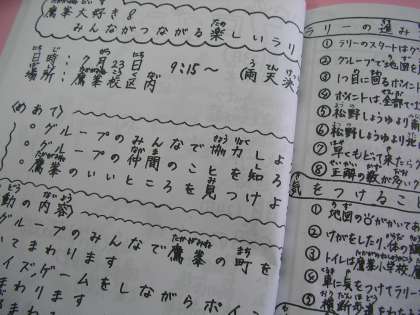 鷹峯大好き8
みんながつながる楽しいラリ
日時：7月23日 9:15〜（雨天決
場所：鷹峯校区内
〈めあて〉
○グループのみんなで協力しよ
○グループの仲間のことを知ろ
○鷹峯のいいところを見つけよ
動の内容〉
グループのみんなで鷹峯の町を
いてまわります
イズ、ゲームをしながらポイ
まわります
ラリーの進み
① ラリーのスタートは
② グループで地図を
③ 1つ目に回るポイント
④ ポイントは、全部で
⑤ 松野しょうゆより
松野しょうゆより北
⑦ 早くもどって来たら
⑧ 正解の数が多い
気をつけること
① 地図の
② けがをしたり、体の
③ トイレは鷹峯小学校
④ 車に気をつけてラリー
横断歩道をわた